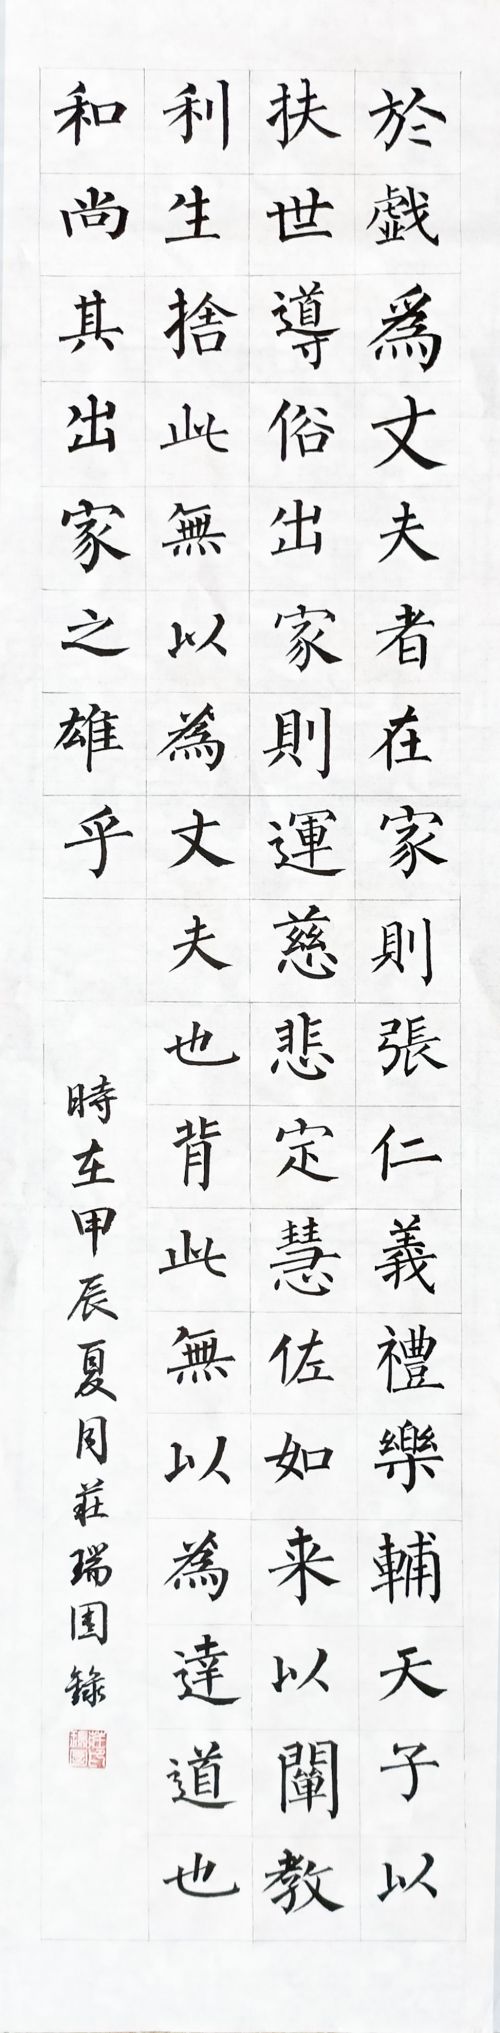 於戲爲丈夫者在家則張仁義禮樂輔天子以
扶世導俗出家則運慈悲定慧佐如来以闡教
利生捨此無以為丈夫也背此無以為達道也
和尚其出家之雄乎
時在甲辰夏月莊瑞園錄